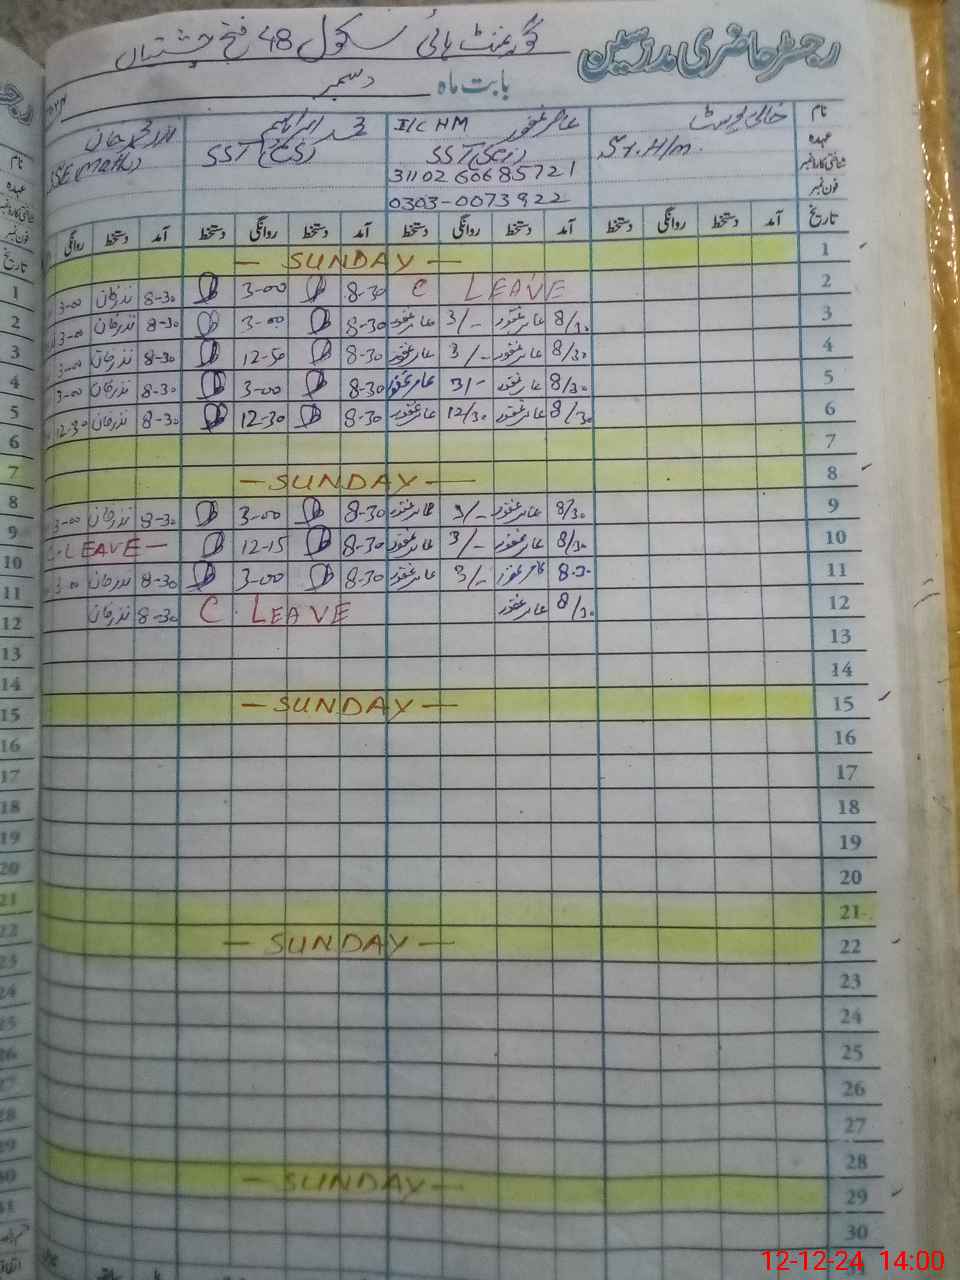 رجسٹر حاضری مدرسین گورنمنٹ ہائی سکول 48 فتح چشتیاں
بابت ماہ دسمبر
نام خالی پوسٹ عامر غفور I/C HM محمد ابراہیم
عہدہ S.T. H/m. SST (Sci) SST SSE (Math)
شناختی کارڈ نمبر 31102 60685721
فون نمبر 0303-0073922
تاریخ آمد دستخط روانگی دستخط آمد دستخط روانگی دستخط آمد دستخط روانگی دستخط آمد دستخط روانگی
1 — SUNDAY —
2 C LEAVE 8-30 3-00 8-30 نذر خان 3-00
3 8/30 عامر غفور 3/- عامر غفور 8-30 3-00 8-30 نذر خان 3-00
4 8/30 عامر غفور 3/- عامر غفور 8-30 12-50 8-30 نذر خان 3-00
5 8/30 عامر غفور 3/- عامر غفور 8-30 3-00 8-30 نذر خان 3-00
6 8/30 عامر غفور 12/30 عامر غفور 8-30 12-30 8-30 نذر خان 12-30
7
8 — SUNDAY —
9 8/30 عامر غفور 3/- عامر غفور 8-30 3-00 8-30 نذر خان 3-00
10 8/30 عامر غفور 3/- عامر غفور 8-30 12-15 C. LEAVE —
11 8-30 عامر غفور 3/- عامر غفور 8-30 3-00 8-30 نذر خان 3-00
12 8/30 عامر غفور C. LEAVE 8-30 نذر خان
13
14
15 — SUNDAY —
16
17
18
19
20
21
22 — SUNDAY —
23
24
25
26
27
28
29 — SUNDAY —
30
12-12-24 14:00